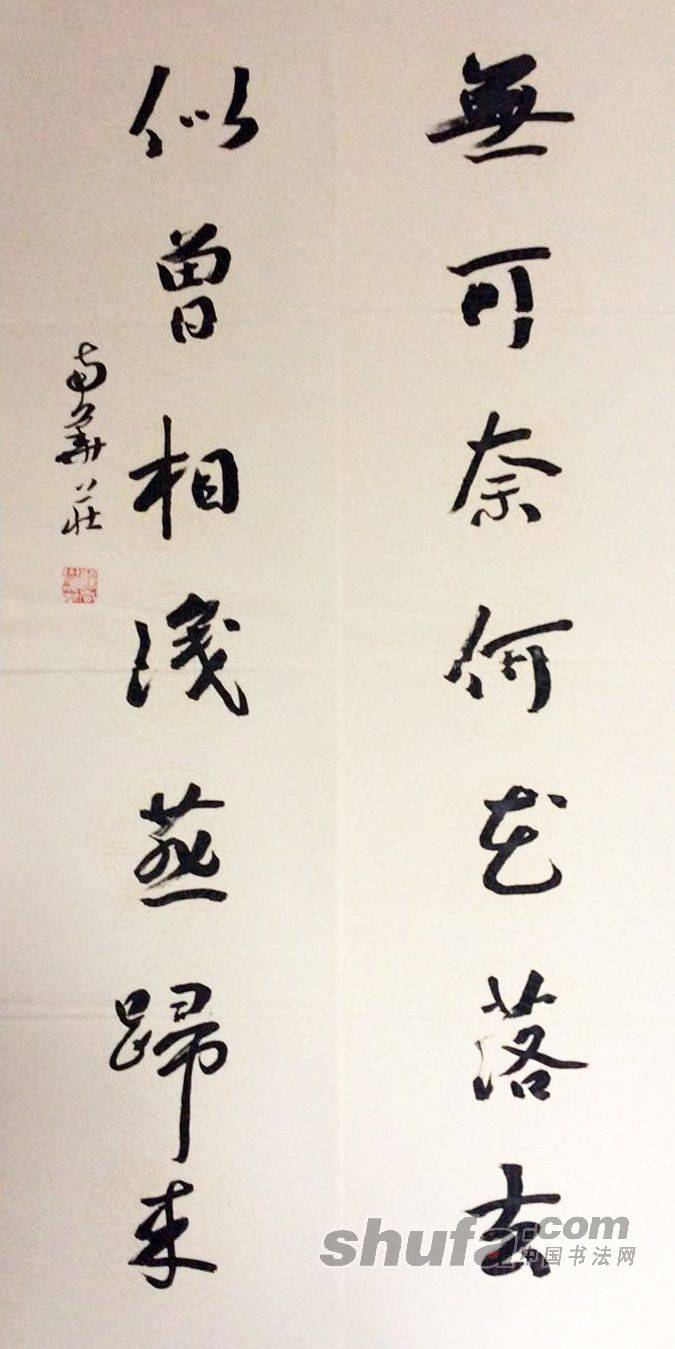 無可奈何花落去
似曾相識燕歸来
南華莊
shufa.com
中国书法网